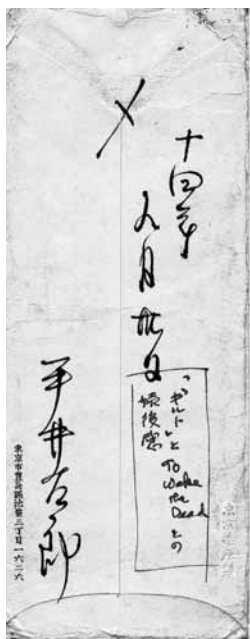 〆
十四年
九月廿日
「ギルト」と To Wake the Dead との
読後感
平井太郎
東京市豊島區池袋三丁目一六二六